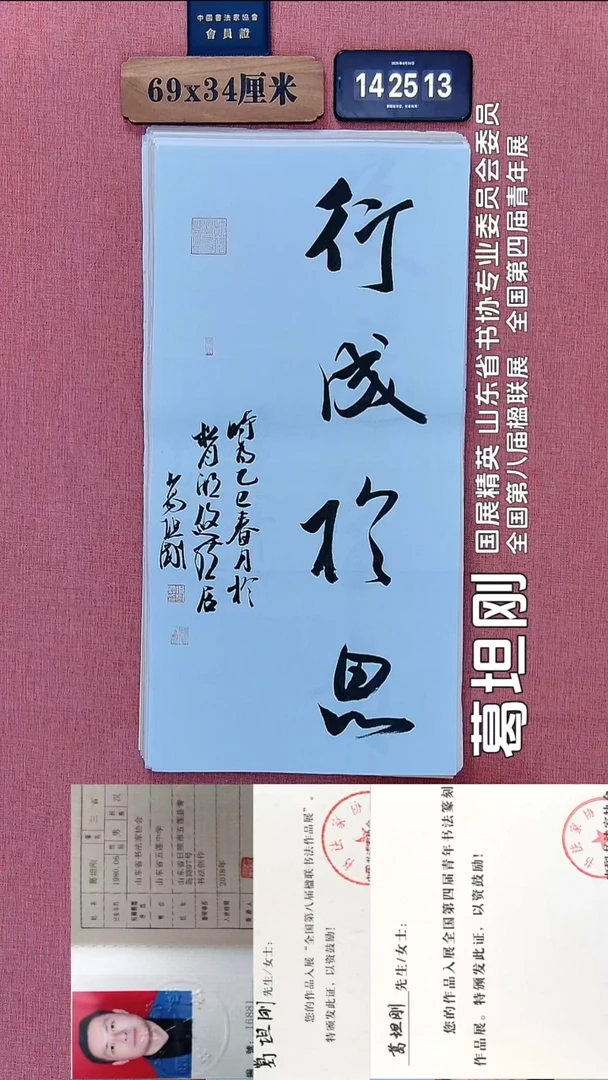 中國書法家協會
會員證
69x34厘米
14 25 13
行成於思
時為乙巳春月於
葛坦刚
葛坦刚
国展精英 山东省书协专业委员会委员
全国第八届楹联展 全国第四届青年展
葛坦刚
1980.06
男
汉
山东省书法家协会
山东省五莲中学
书法创作
2018年
16881
葛坦刚 先生/女士:
您的作品入展“全国第八届楹联书法作品展”。
特颁发此证,以资鼓励!
葛坦刚 先生/女士:
您的作品入展全国第四届青年书法篆刻
作品展。特颁发此证,以资鼓励!